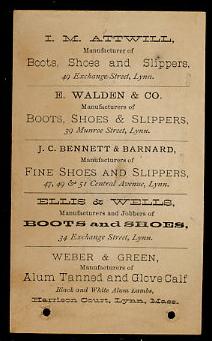 I. M. ATTWILL,
Manufacturer of
Boots, Shoes and Slippers,
49 Exchange Street, Lynn.
E. WALDEN & CO.
Manufacturers of
BOOTS, SHOES & SLIPPERS,
39 Munroe Street, Lynn.
J. C. BENNETT & BARNARD,
Manufacturers of
FINE SHOES AND SLIPPERS,
47, 49 & 51 Central Avenue, Lynn.
ELLIS & WELLS,
Manufacturers and Jobbers of
BOOTS and SHOES,
34 Exchange Street, Lynn.
WEBER & GREEN,
Manufacturers of
Alum Tanned and Glove Calf
Black and White Alum Lambs,
Harrison Court, Lynn, Mass.